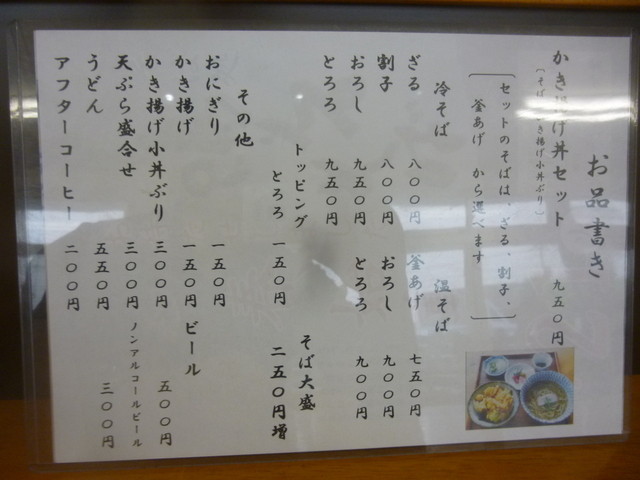 お品書き
かき揚げ丼セット 九五〇円
(そば、かき揚げ小丼ぶり)
セットのそばは、ざる、割子、
釜あげ から選べます
冷そば
ざる 八〇〇円
割子 八〇〇円
おろし 九五〇円
とろろ 九五〇円
温そば
釜あげ 七五〇円
おろし 九〇〇円
とろろ 九〇〇円
トッピング
とろろ 一五〇円
そば大盛
二五〇円増
その他
おにぎり 一五〇円
かき揚げ 一五〇円
かき揚げ小丼ぶり 三〇〇円
天ぷら盛合せ 三〇〇円
うどん 五五〇円
アフターコーヒー 二〇〇円
ビール 五〇〇円
ノンアルコールビール
三〇〇円